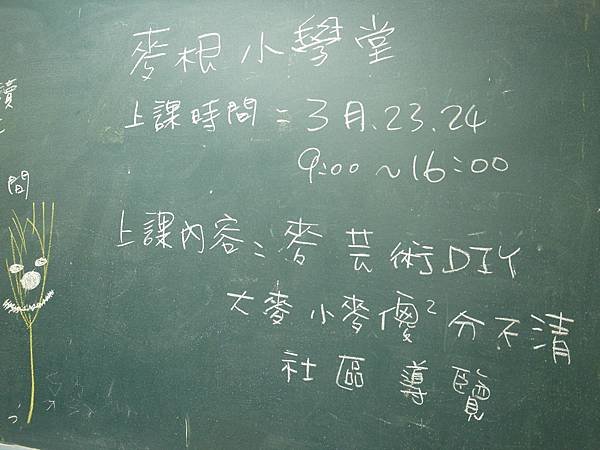 麥根小學堂
上課時間：3月.23.24
9:00～16:00
上課內容：麥芸術DIY
大麥小麥傻²分不清
社區導覽
讀
間